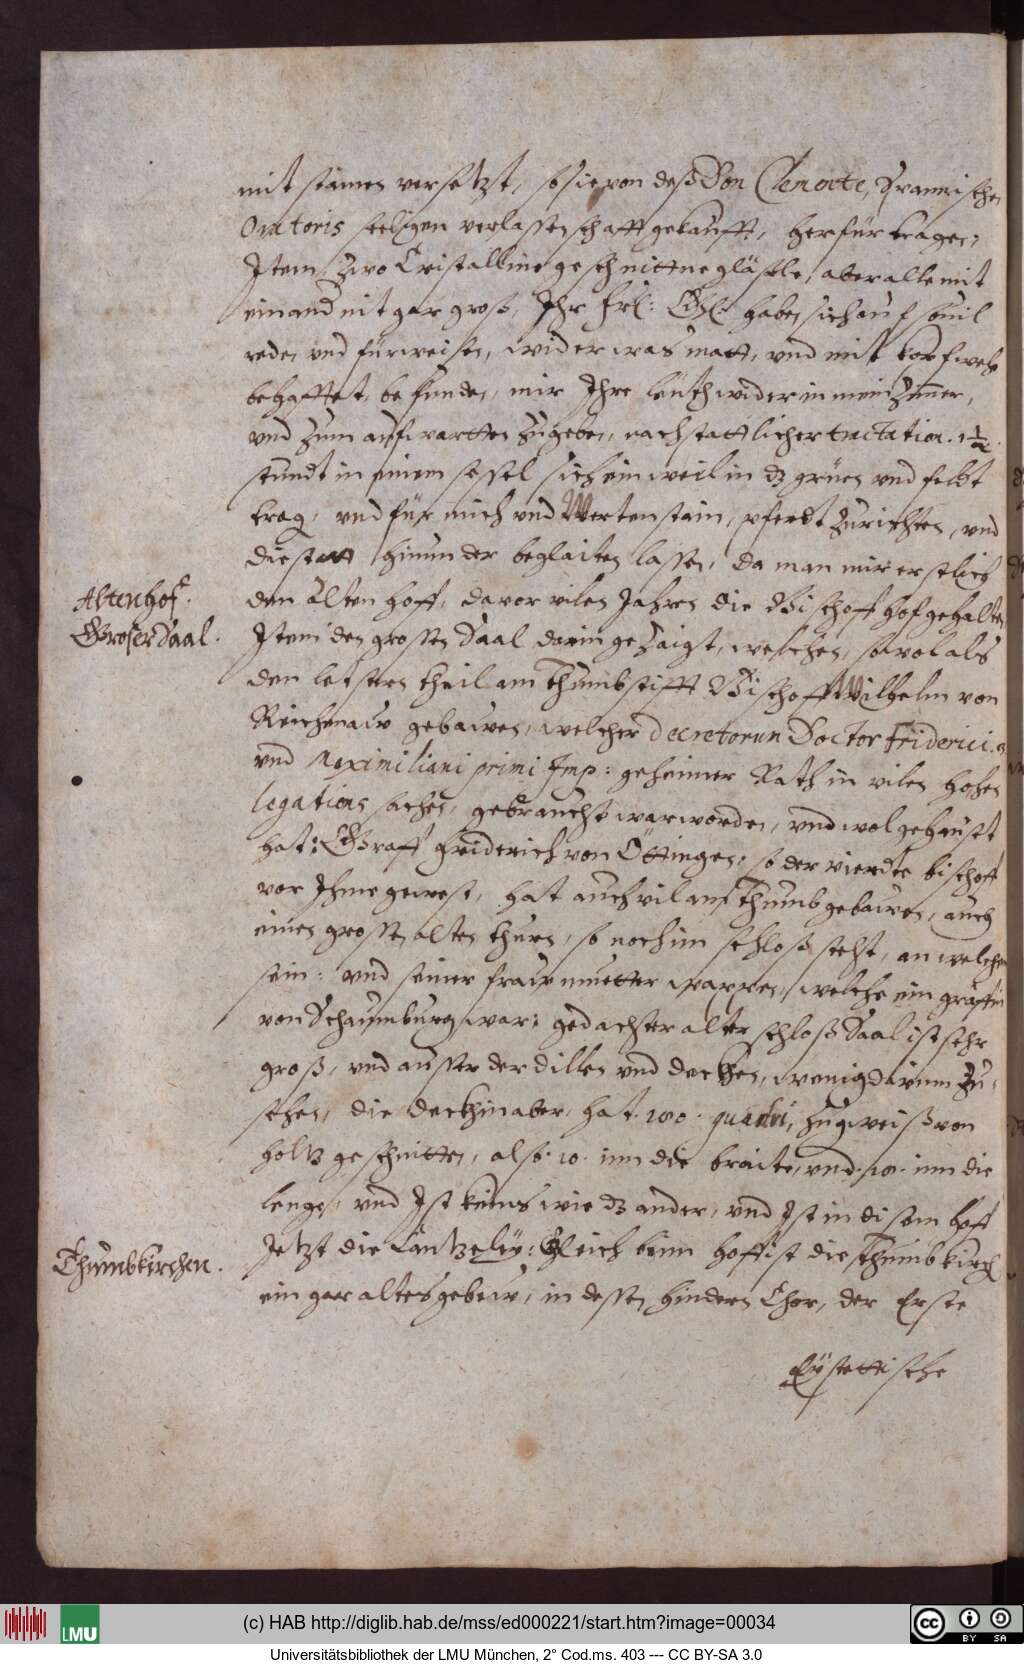 mit stainen versetzt, so sie von deß Don Clemente, Spannischen
Oratoris seeligen verlassenschafft gekaufft, herfür tragen;
Item zwo Cristalline geschnittne gläsle, aber alle mit
einand nit gar gross, Ihr Frl: Gn: haben sich auf souil
reden und fürweisen, wider was matt, und mit kopfweh
behafftet, befunden, mir Ihre leüth wider in mein Zimer,
und zum aufwartten zugeben, nach stattlicher tractation . 1½.
stundt in einem sessel sich ein weil in dz grüen und feldt
trag, und für mich und Wertenstain, pferdt zurichten, und
die statt hinunder beglaiten lassen, da man mir erstlich
den alten hoff, davor vilen Jahren die Bischoff hofgehalten
Item den grossen Saal darin gezaigt, welchen, sowol als
den letsten theil am Thumbstifft Bischoff Wilhelm von
Reichenaw gebawen, welcher decretorum Doctor Friderici. 3.
und Maximiliani primi Imp: geheimer Rath in vilen hohen
legations sachen, gebraucht war worden, und wol gehauset
hat: Graff Friderich von Öttingen, so der vierdte bischoff
vor Ihme gewest, hat auch vil am Thumb gebawen, auch
einen grossen alten thurn, so noch im schloß steht, an welchem
sein: und seiner fraw muetter wappen, welche ein gräffin
von Schaumburg war: gedachter alter schloß Saal ist sehr
groß, und ausser der dillen und decken, wenig darinn zu-
sehen, die deckhin aber, hat .100. quadri, zugweiß von
holtz geschnitten, also .10. inn die braite, und .10. inn die
lenge, und Ist keins wie dz ander, und Ist in disem hoff
Jetzt die Cantzeley: Gleich beim hoff ist die Thumbkirch
ein gar altes gebew, in dessen hindern Chor, der Erste
Eystettische
Altenhof.
Grosser Saal.
Thumbkirchen.
(c) HAB http://diglib.hab.de/mss/ed000221/start.htm?image=00034
LMU
cc BY SA
Universitätsbibliothek der LMU München, 2° Cod.ms. 403 --- CC BY-SA 3.0